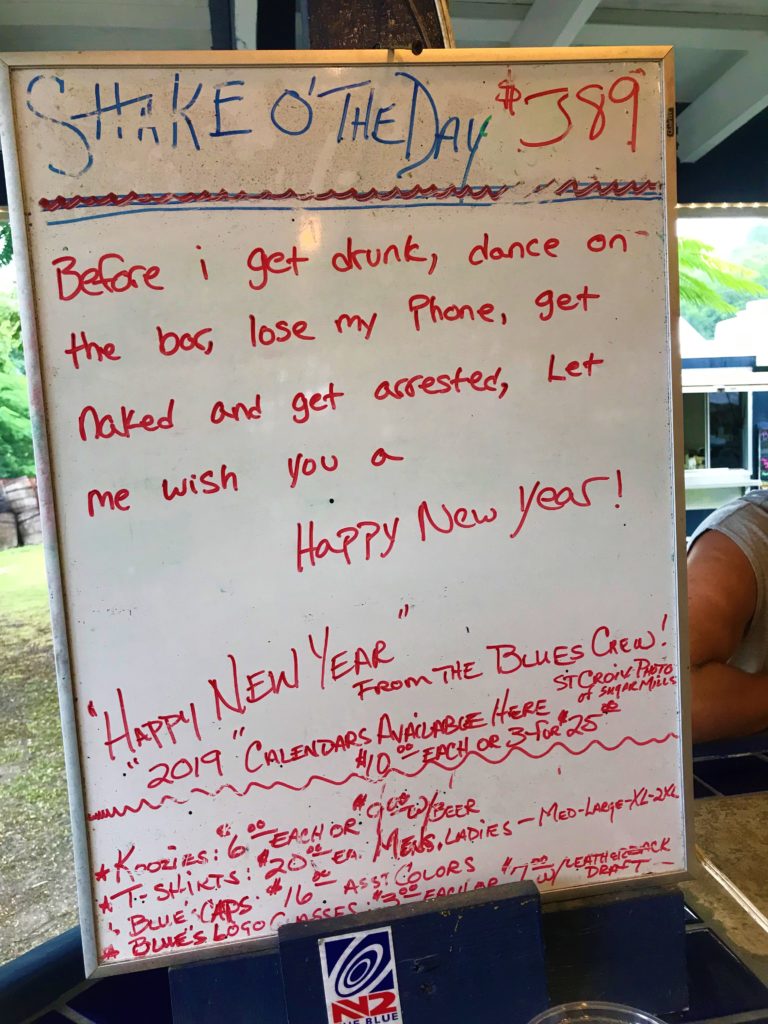 SHAKE O' THE DAY $389
Before i get drunk, dance on
the bar, lose my Phone, get
naked and get arrested, Let
me wish you a
Happy New Year!
"HAPPY NEW YEAR"
FROM THE BLUES CREW!
"2019" CALENDARS AVAILABLE HERE
ST CROIX PHOTO
OF SUGAR MILLS
$10.00 EACH OR 3 FOR $25.00
* KOOZIES: $6.00 EACH OR $9.00 W/BEER
* T-SHIRTS: $20.00 EA. MENS, LADIES - MED-LARGE-XL-2XL
BLUE CAPS $16.00 ASST COLORS
* BLUE'S LOGO GLASSES: $3.00 EACH OR $7.00 W/ LEATHERBACK
DRAFT
N2
THE BLUE